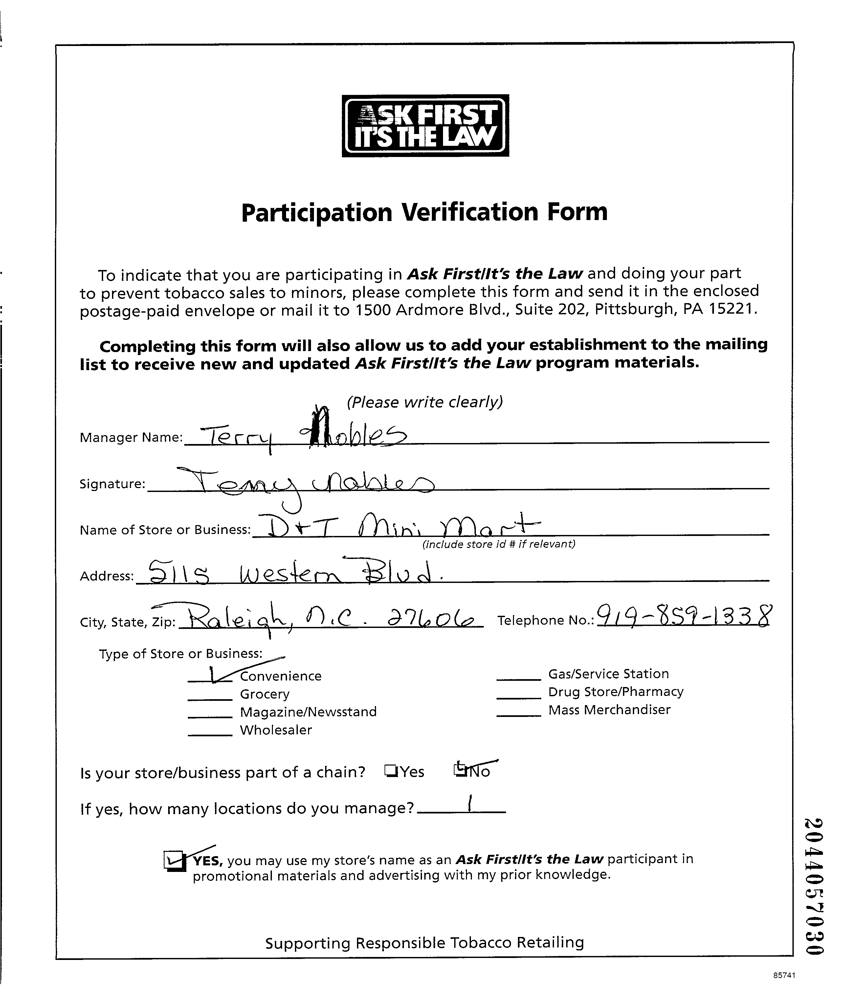 ASK FIRST
IT'S THE LAW
Participation Verification Form
To indicate that you are participating in Ask First/It's the Law and doing your part
to prevent tobacco sales to minors, please complete this form and send it in the enclosed
postage-paid envelope or mail it to 1500 Ardmore Blvd., Suite 202, Pittsburgh, PA 15221.
Completing this form will also allow us to add your establishment to the mailing
list to receive new and updated Ask First/It's the Law program materials.
(Please write clearly)
Manager Name: Terry Nobles
Signature: Terry Nobles
Name of Store or Business: D+T Mini Mart
(include store id # if relevant)
Address: 5115 Western Blvd.
City, State, Zip: Raleigh, N.C. 27606 Telephone No.: 919-859-1338
Type of Store or Business:
Convenience Gas/Service Station
Grocery Drug Store/Pharmacy
Magazine/Newsstand Mass Merchandiser
Wholesaler
Is your store/business part of a chain? Yes No
If yes, how many locations do you manage? 1
YES, you may use my store's name as an Ask First/It's the Law participant in
promotional materials and advertising with my prior knowledge.
Supporting Responsible Tobacco Retailing
2044057030
85741